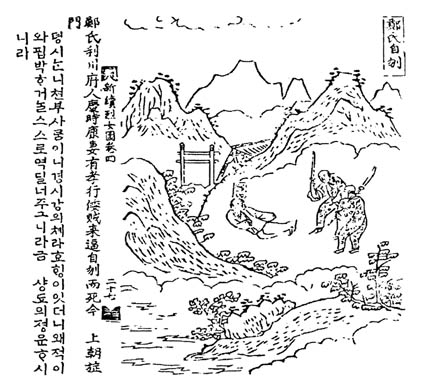 鄭氏自刎
新續烈女圖卷四 二十七
鄭氏利川府人慶時康妻有孝行倭賊來逼自刎而死今 上朝旌
門
뎡시ᄂᆞᆫ니쳔부사ᄅᆞᆷ이니경시강의체라효ᄒᆡᆼ이잇더니왜적이
와핍박ᄒᆞ거ᄂᆞᆯ스스로멱딜너주그니라금 샹됴의졍문ᄒᆞ시
니라